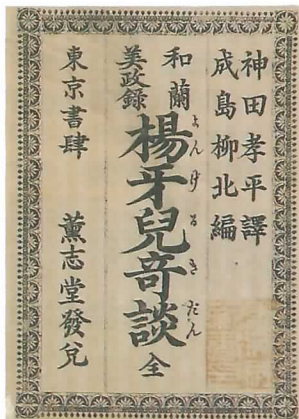 神田孝平譯
成島柳北編
和蘭
美政録
楊牙兒奇談 全
よんげるきだん
東京書肆 薫志堂發兌